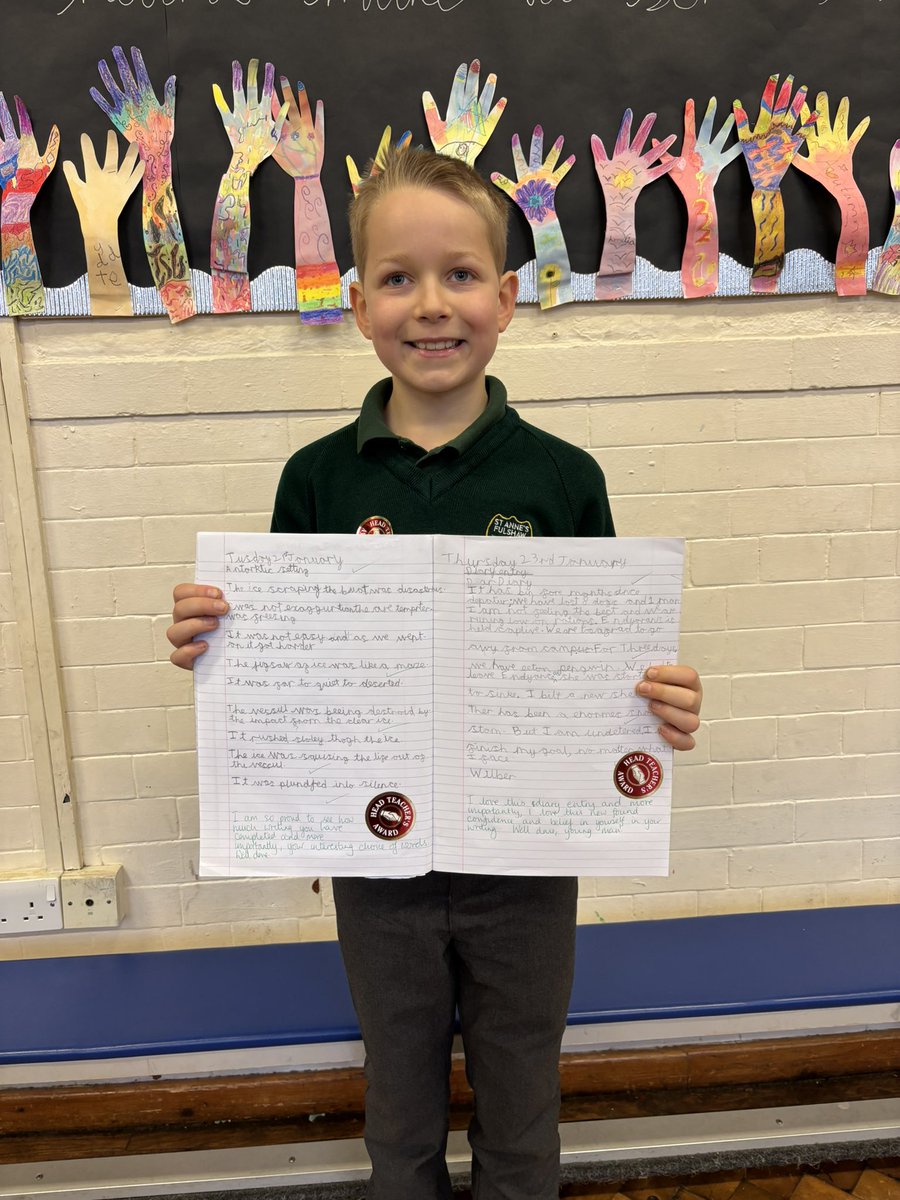 ST ANNE'S
FULSHAW
Tusday 21st January
Antarktic setting
The ice scraping the boat was disastous
I was not
was freesing
It was not easy and as we went
on it got harder
The jigsaw of ice was like a maze.
It was far to quiet to deserted.
The vessul was beeing destroid by
the impact from the clear ice
It rushed sloley thogh the ice
The ice was squising the life out of
the vessul
It was into silence
I am so proud to see how
much writing you have
completed and more
importantly, your interesting choice of
Well done
HEAD TEACHER'S
AWARD
Thursday 23rd January
Diary entry
Dear Diary
It has by sore months since
we have lost 9 dogs and 1 man
I am not feeling the best and
runing low on rations.
held captive. We are to to go
awy from campus For Three days
we have eaten penguin.
leave she was
to sinke. I bilt a new
Ther has been a enormes
stom. But I am
finish my goal, no matter what
I face
Wilber
I love this diary entry and more
importantly, I love this new found
confidence and belief in yourself in your
writing. Well done, young man
HEAD TEACHER'S
AWARD